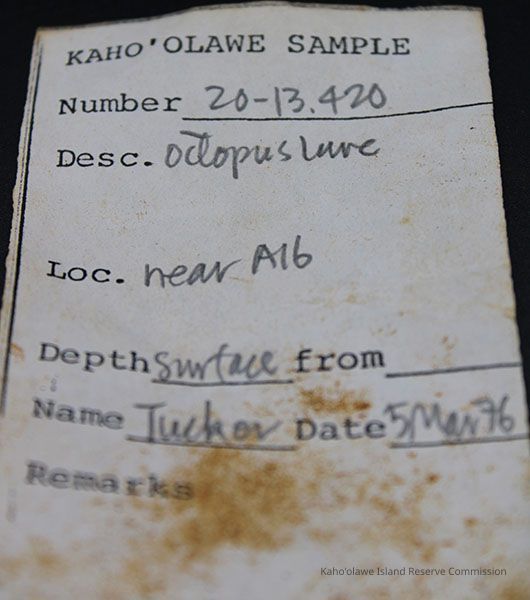 KAHO'OLAWE SAMPLE
Number 20-13.420
Desc. Octopus Lure
Loc. near A16
Depth Surface from
Name Tucker Date 5 Mar 76
Remarks
Kaho'olawe Island Reserve Commission